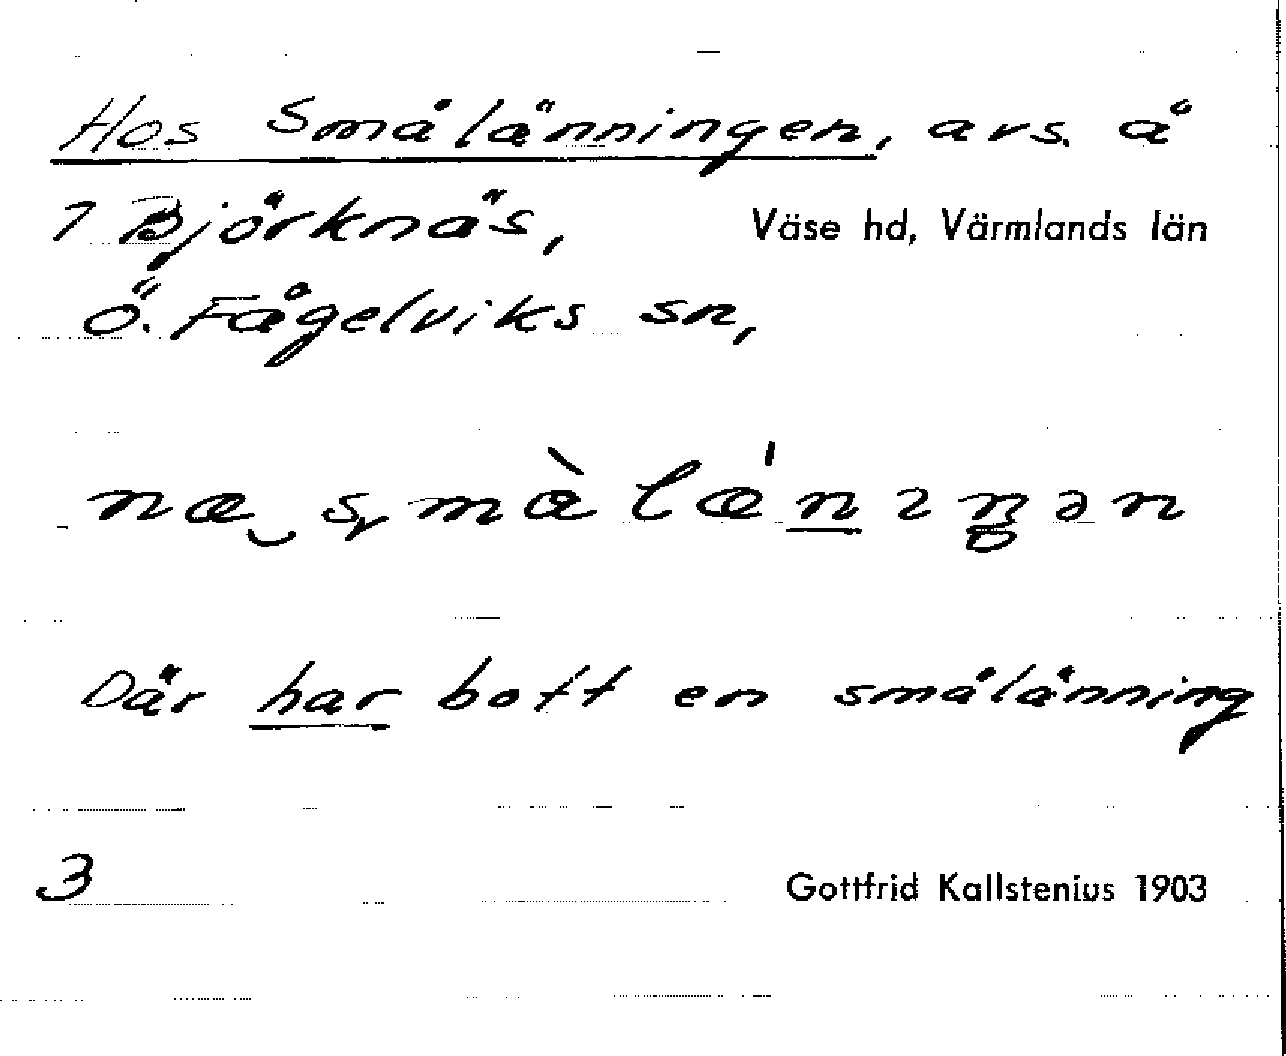 Hos Smålänningen, avs. å
1 Björknäs, Väse hd, Värmlands län
Ö. Fågelviks sn,
Där har bott en smålänning
3 Gottfrid Kallstenius 1903